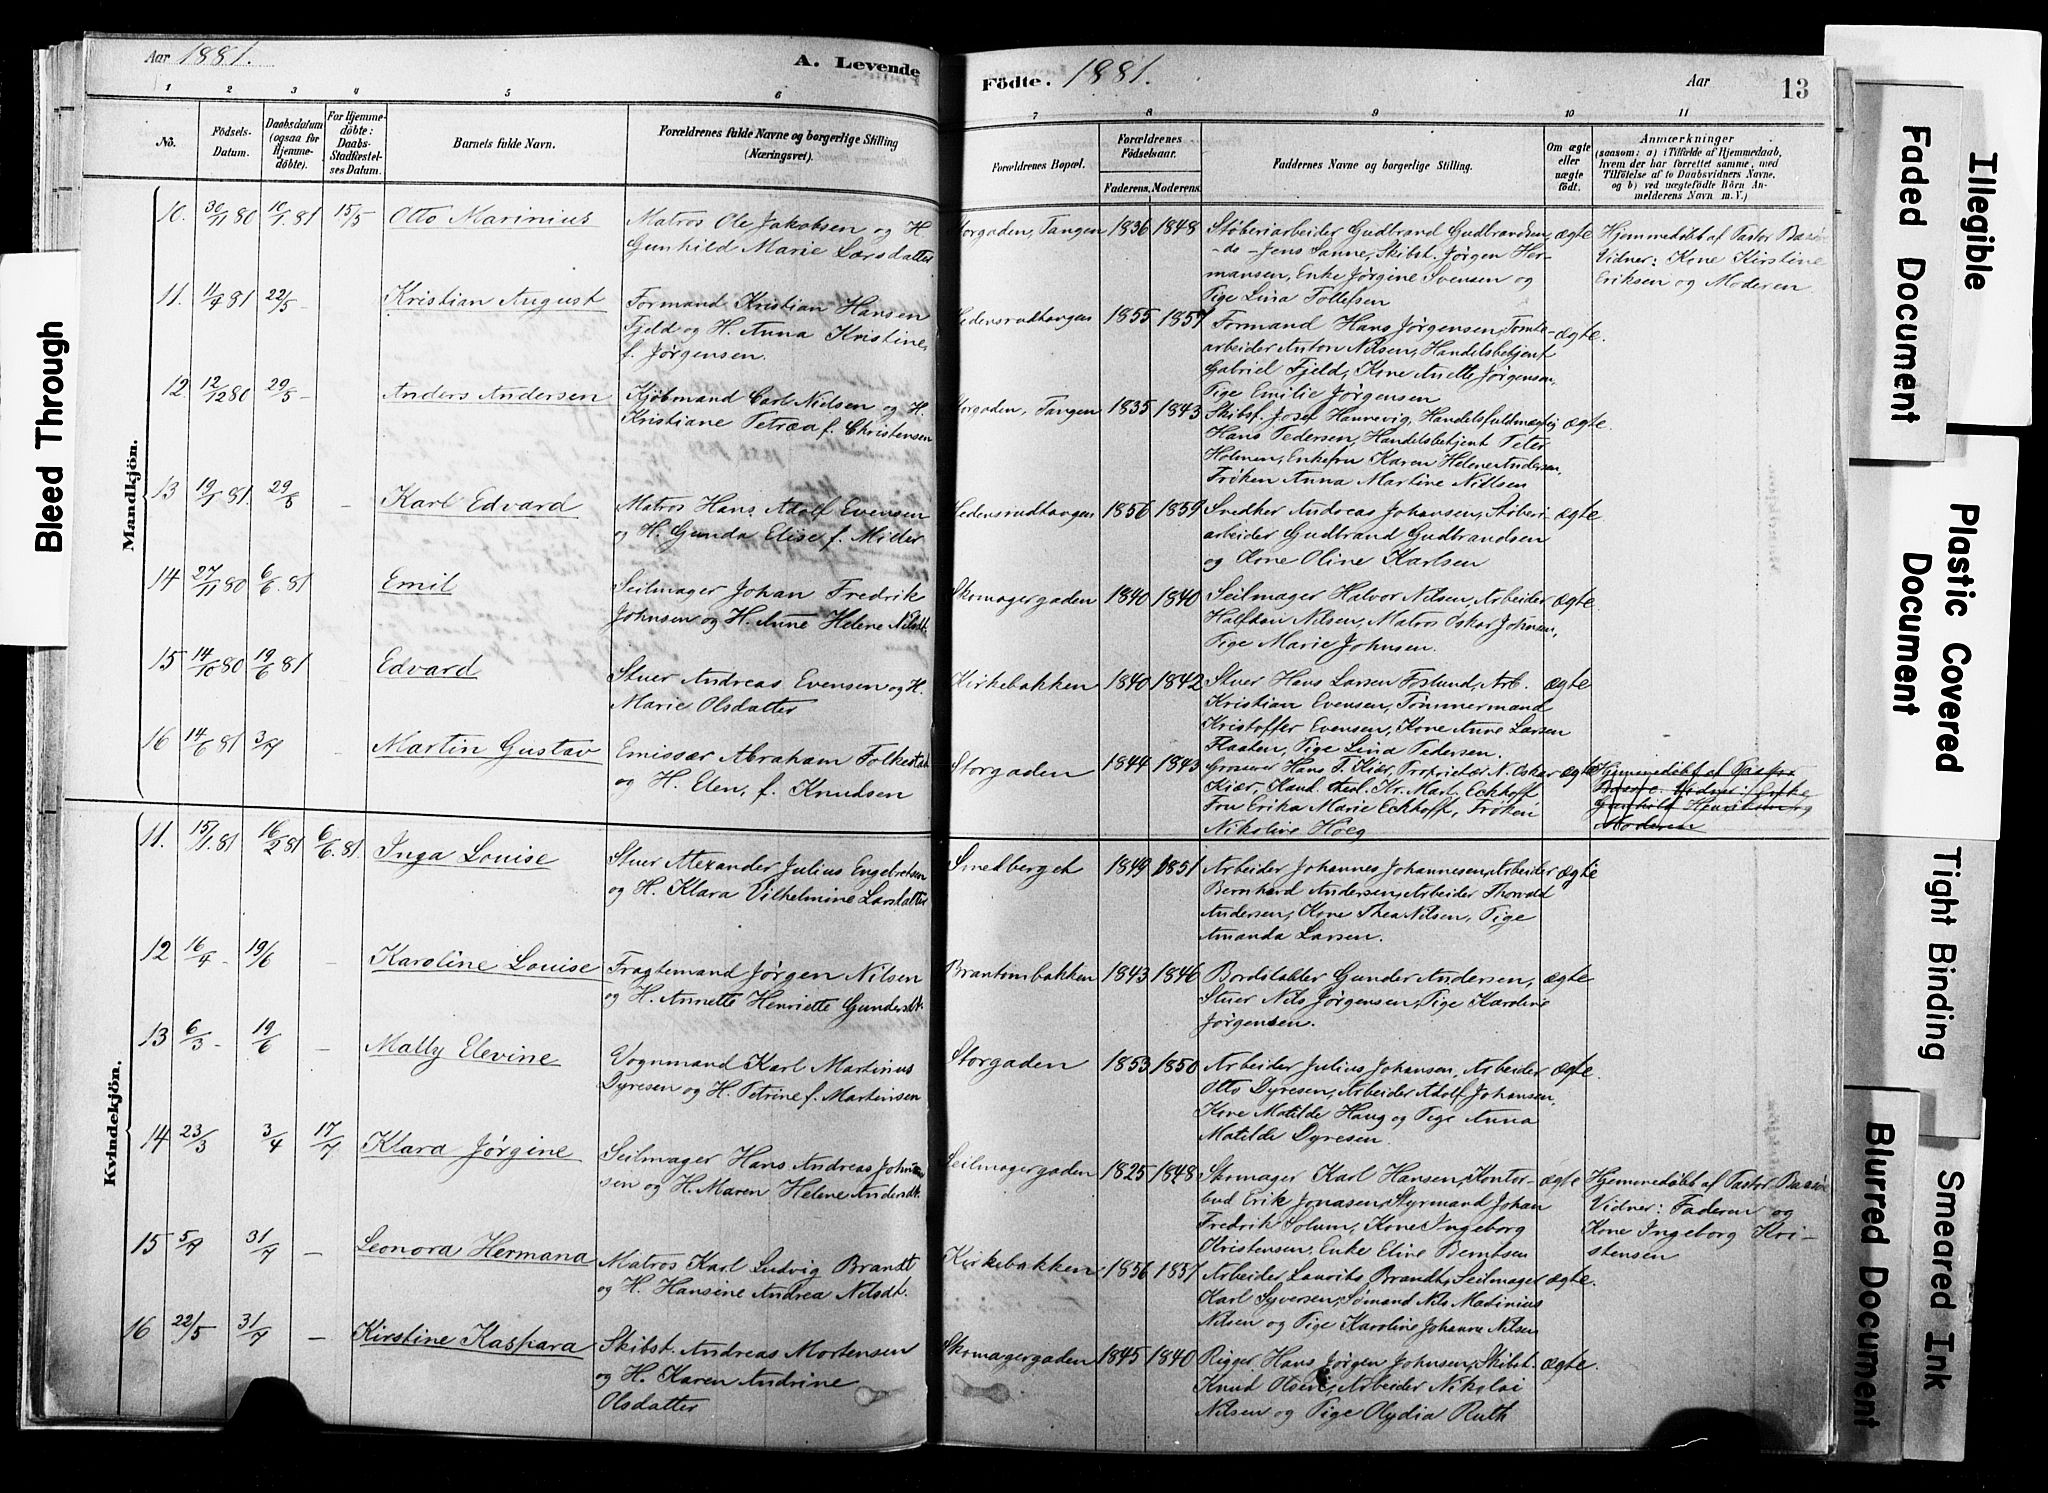 Aar 1881.
A. Levende
Födte. 1881.
Aar
13
1 2 3 4 5 6 7 8 9 10 11
No.
Födsels-Datum.
Daabsdatum (ogsaa for Hjemme-döbte).
For Hjemme-döbte: Daabs-Stadfæstel-ses Datum.
Barnets fulde Navn.
Forældrenes fulde Navne og borgerlige Stilling (Næringsvei).
Forældrenes Bopæl.
Forældrenes Födselsaar.
Faderens. Moderens.
Faddernes Navne og borgerlige Stilling.
Om ægte eller uægte födt.
Anmærkninger
(saasom: a) i Tilfælde af Hjemmedaab,
hvem der har forrettet samme, med
Tilföielse af to Daabsvidners Navne,
og b) ved uægtefödte Börn An-
melderens Navn m. V.)
Mandkjön.
10. 30/11 80 10/1 81 15/5 Otto Marinius
Matros Ole Jakobsen og H.
Gunhild Marie Larsdatter
Storgaden, Tangen 1836 1848
Støberiarbeider Gudbrand Gudbrandsen,
-do- Jens Sanne, Skibst. Jørgen Her-
mansen, Enke Jørgine Svensen og
Pige Lina Tollefsen
ægte
Hjemmedøbt af Pastor Basøe
Vidner: Kone Kirstine
Eriksen og Moderen
11. 11/4 81 22/5 - Kristian August
Formand Kristian Hansen
Fjeld og H. Anna Kristine
f. Jørgensen.
1855 1857
Formand Hans Jørgensen, Tomte-
arbeider Anton Nilsen, Handelsbetjent
Gabriel Fjeld, Kone Anette Jørgensen,
Pige Emilie Jørgensen
ægte.
12. 12/12 80 29/5 - Anders Andersen
Kjøbmand Carl Nielsen og H.
Kristiane Petræa f. Christensen
Storgaden, Tangen 1835 1843
Skibsf. Josef Hannevig, Handelsfuldmægtig
Hans Pedersen, Handelsbetjent Peter
Holmen, Enkefru Karen Helene Andersen,
Frøken Anna Martine Nielsen
ægte.
13 19/1 81. 29/5 - Karl Edvard
Matros Hans Adolf Evensen
og H. Gunda Elise f. Milder
1856 1859
Snedker Andreas Johansen, Støberi-
arbeider Gudbrand Gudbrandsen
og Kone Oline Karlsen
ægte
14 27/11 80 6/6. 81 Emil
Seilmager Johan Fredrik
Johnsen og H. Anne Helene Nilsdt.
Skomagergaden 1840 1840
Seilmager Halvor Nilsen, Arbeider
Halfdan Nilsen, Matros Oskar Johnsen,
Pige Marie Johnsen.
ægte.
15 14/10 80 19/6 81 Edvard
Stuer Andreas Evensen og H.
Marie Olsdatter
Kirkebakken 1840 1842
Stuer Hans Larsen Foslund, Arb.
Kristian Evensen, Tømmermand
Kristoffer Evensen, Kone Anne Larsen
Flaaten, Pige Lina Pedersen.
ægte
16 14/6 81 3/7 Martin Gustav
Emissær Abraham Folkestad
og H. Elen, f. Knudsen
Storgaden 1844 1843
Grosserer Hans T. Kiær, Proprietær N. Oskar
Kiær, Kand. theol. Kr. Mart. Eckhoff
Fru Erika Marie Eckhoff, Frøken
Nikoline Høeg
ægte
Hjemmedøbt af Pastor
Basøe. Vidner: Enke
Gunhild Henriksen og
Moderen
Kvindekjön.
11. 15/1. 81 16/2 81 6/6. 81. Inga Louise
Stuer Alexander Julius Engebretsen
og H. Klara Vilhelmine Larsdatter
Smedberget 1849 1851
Arbeider Johannes Johannesen, Arbeider
Bernhard Andersen, Arbeider Thorvald
Andersen, Kone Thea Nilsen, Pige
Amanda Larsen.
ægte
12 16/4 - 19/6 - Karoline Louise
Fragtemand Jørgen Nilsen
og H. Annette Henriette Gundersdt.
Brantenbakken 1843 1846
Bordstabler Gunder Andersen,
Stuer Nils Jørgensen, Pige Karoline
Jørgensen.
ægte
13 6/3 - 19/6 - Mally Elevine
Vognmand Karl Martinius
Dyresen og H. Petrine f. Martinsen
Storgaden 1853 1850
Arbeider Julius Johansen, Arbeider
Otto Dyresen, Arbeider Adolf Johansen,
Kone Matilde Haug og Pige Anna
Matilde Dyresen.
ægte.
14 23/3 3/4 17/7 Klara Jørgine
Seilmager Hans Andreas Johan-
sen og H. Maren Helene Andersdt.
Seilmagergaden 1825 1848
Skomager Karl Hansen, Kontor-
bud Erik Jonasen, Styrmand Johan
Fredrik Solum, Kone Ingeborg
Kristensen, Enke Eline Berntsen
ægte
Hjemmedøbt af Pastor Basøe
Vidner: Faderen og
Kone Ingeborg Kri-
stensen
15 5/7 31/7 - Leonora Hermana
Matros Karl Ludvig Brandt
og H. Hansine Andrea Nilsdt.
Kirkebakken 1856 1857
Arbeider Laurits Brandt, Seilmager
Karl Syversen, Sømand Nils Matinius
Nilsen og Pige Karoline Johanne Nilsen
ægte.
16 22/5 31/7 - Kirstine Kaspara
Skibst. Andreas Mortensen
og H. Karen Andrine
Olsdatter
Skomagergaden 1845 1840
Rigger Hans Jørgen Johnsen, Skibst.
Knud Olsen, Arbeider Nikolai
Nilsen og Pige Olydia Ruth
ægte.
Bleed Through
Illegible
Faded Document
Plastic Covered
Document
Tight Binding
Blurred Document
Smeared Ink